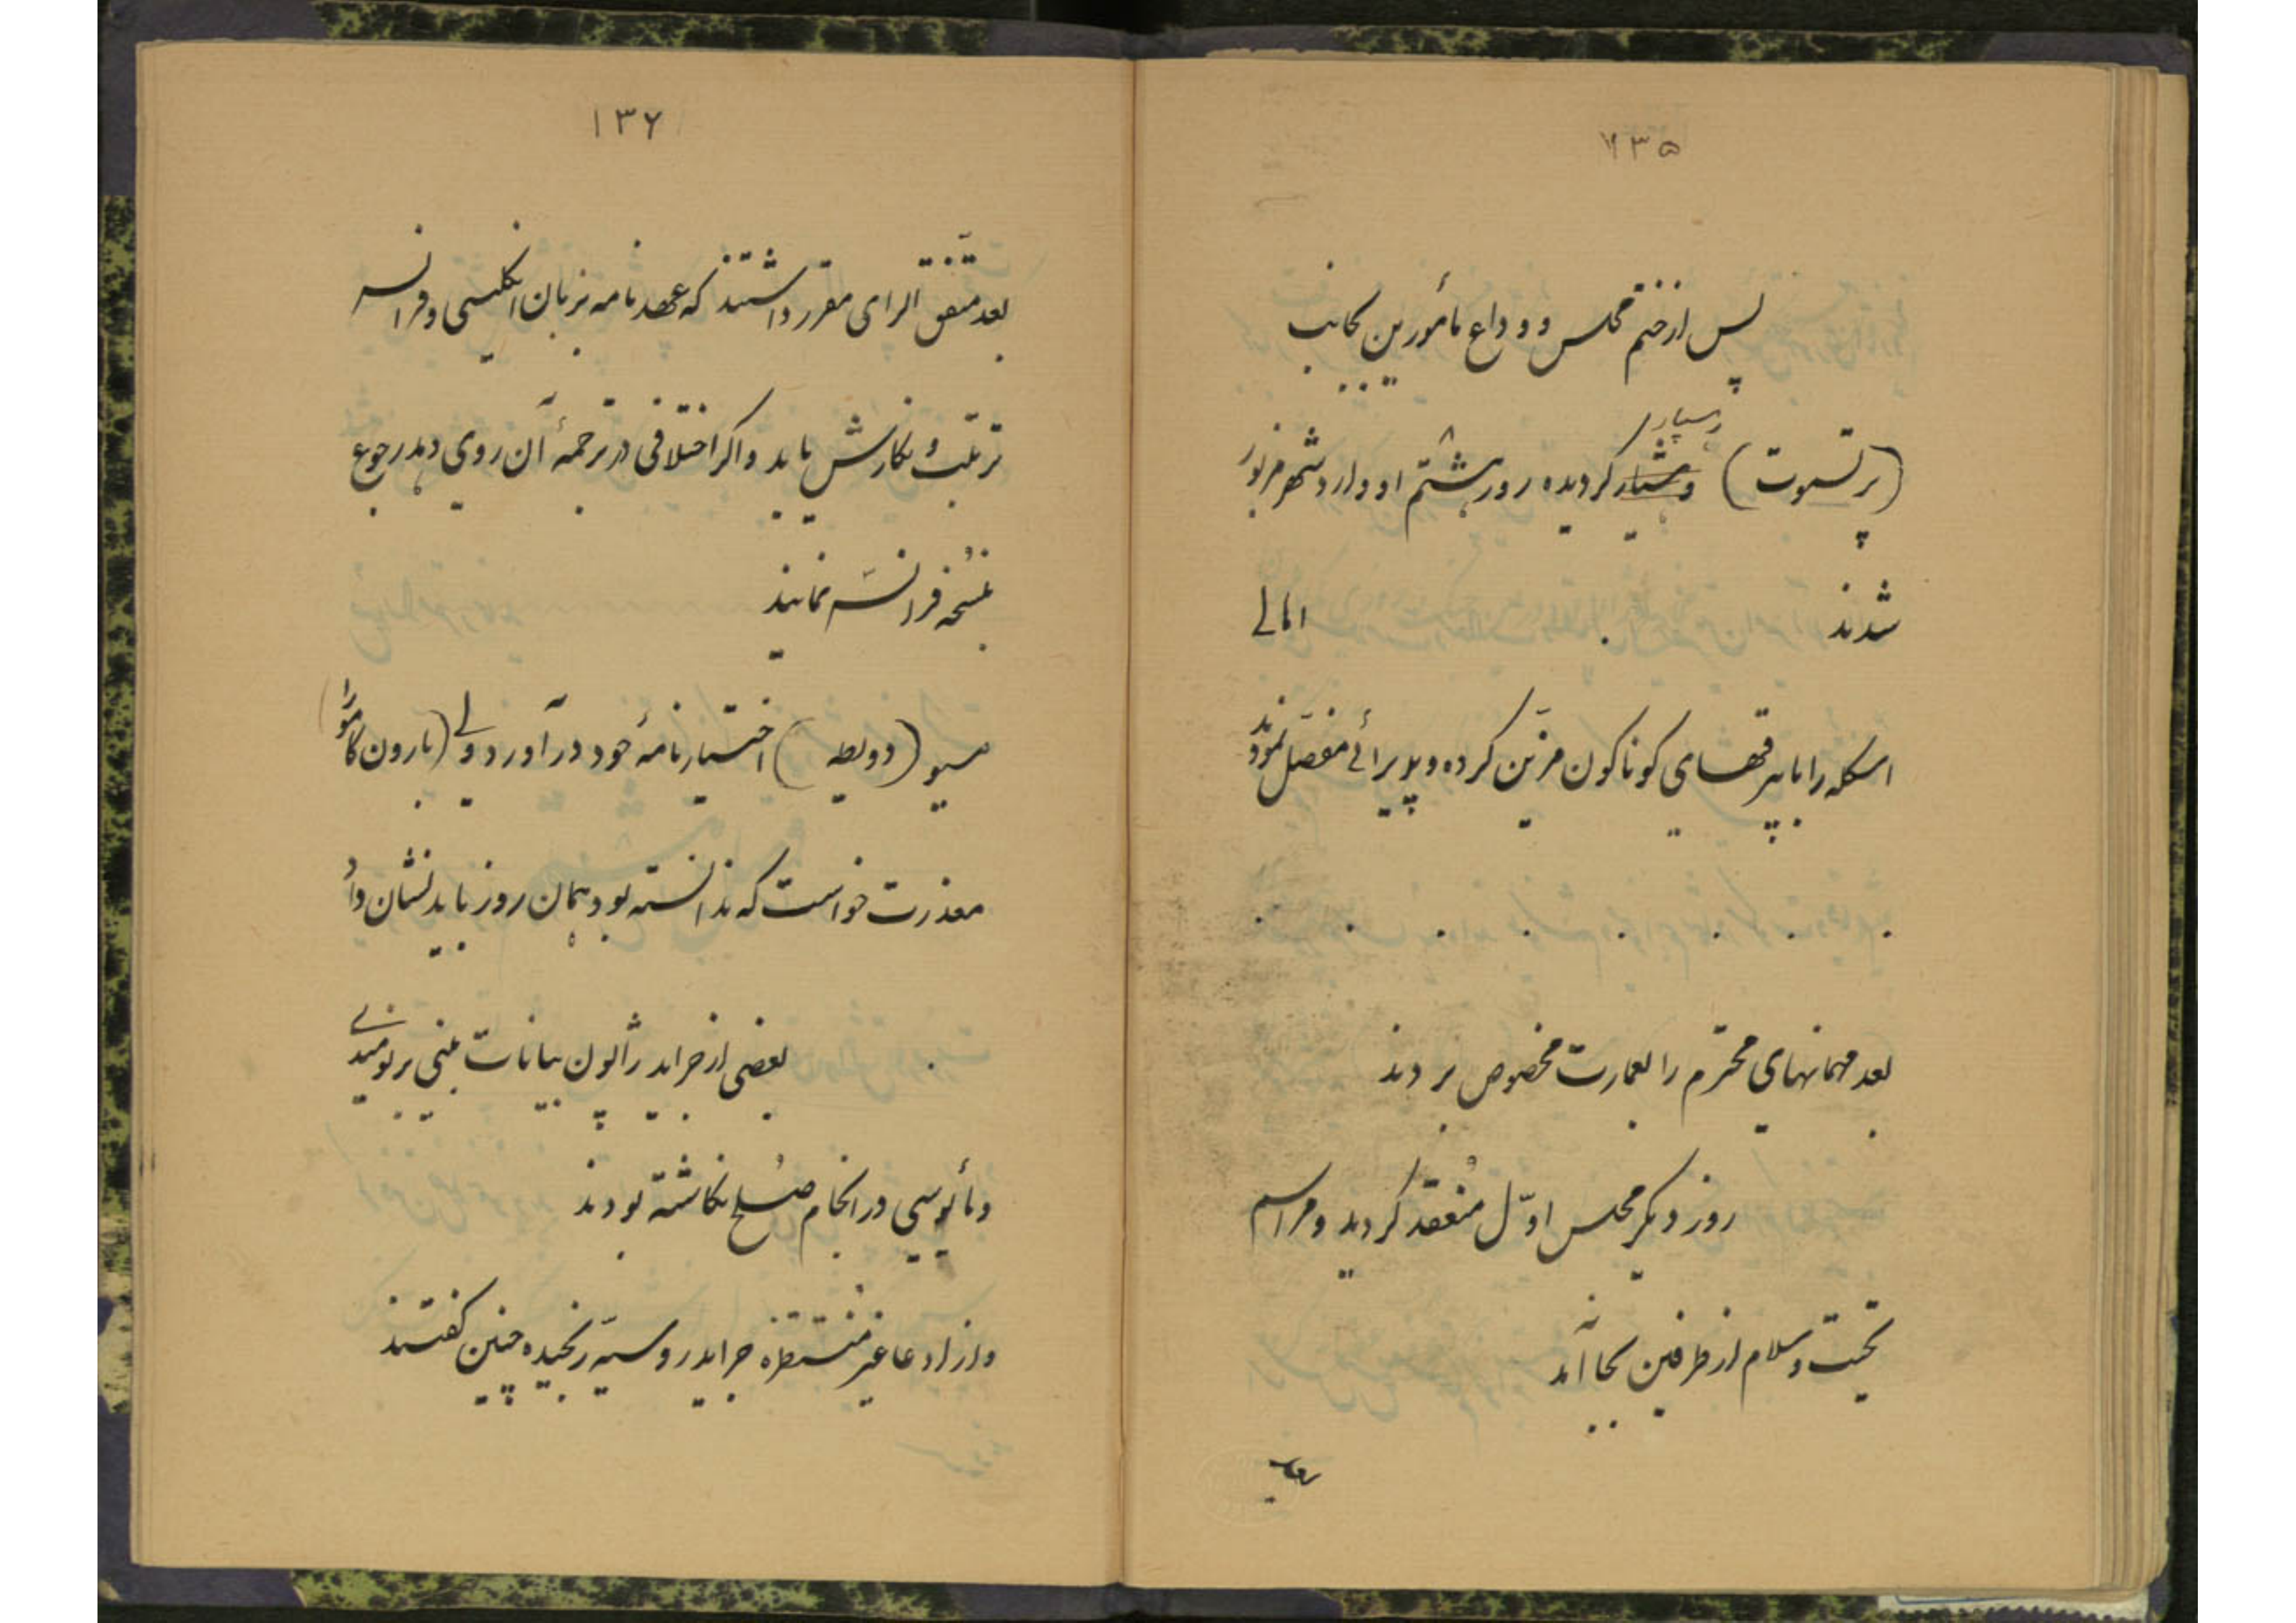 ۱۳۵
پس از ختم مجلس و وداع مأمورین بجانب
(پرتسموت) رهسپار گردیده روز هشتم اوت وارد شهر مزبور
شدند اهالی
اسکله را با بیرقهای کوناکون مزیّن کرده و پذیرائی مفصّل نمودند
بعد مهمانهای محترم را بعمارت مخصوص بردند
روز دیگر مجلس اوّل مُنعقد گردید و مراسم
تحیّت و سلام از طرفین بجا آمد
۱۳۶
بعد متّفق الرای مقرر داشتند که عهدنامه بزبان انکلیسی و فرانسه
ترتیب و نگارش یابد و اکر اختلافی در ترجمهٔ آن روی دهد رجوع
بنُسخه فرانسَه نمایند
مسیو (دویطه) اختیارنامهٔ خود در آورد ولی (بارون کامورا)
معذرت خواست که ندانسته بود همان روز باید نشان داد
بعضی از جراید ژاپون بیانات مبنی بر نومیدی
و مأیوسی در انجام صُلح نکاشته بودند
و از ادعا غیر مُنتظره جراید روسیّه رنجیده چنین کفتند